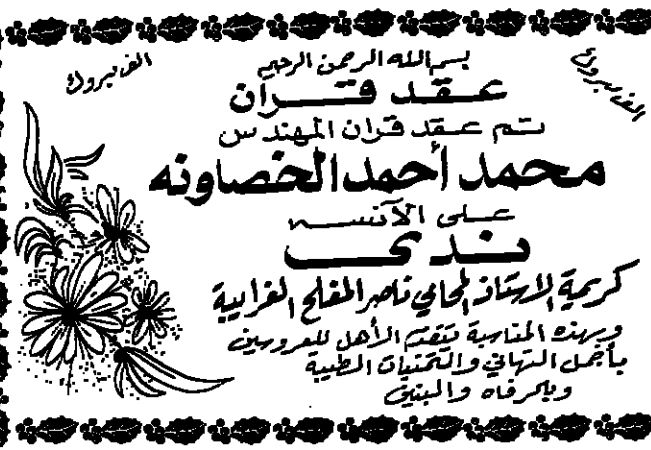 الف مبروك
الف مبروك
بسم الله الرحمن الرحيم
عقد قران
تم عقد قران المهندس
محمد أحمد الخصاونه
على الآنسه
ندى
كريمة الاستاذ المحامي ناصر المفلح الغرايبة
وبهذه المناسبة يتقدم الأهل للعروسين
بأجمل التهاني والتمنيات الطيبة
وبالرفاه والبنين